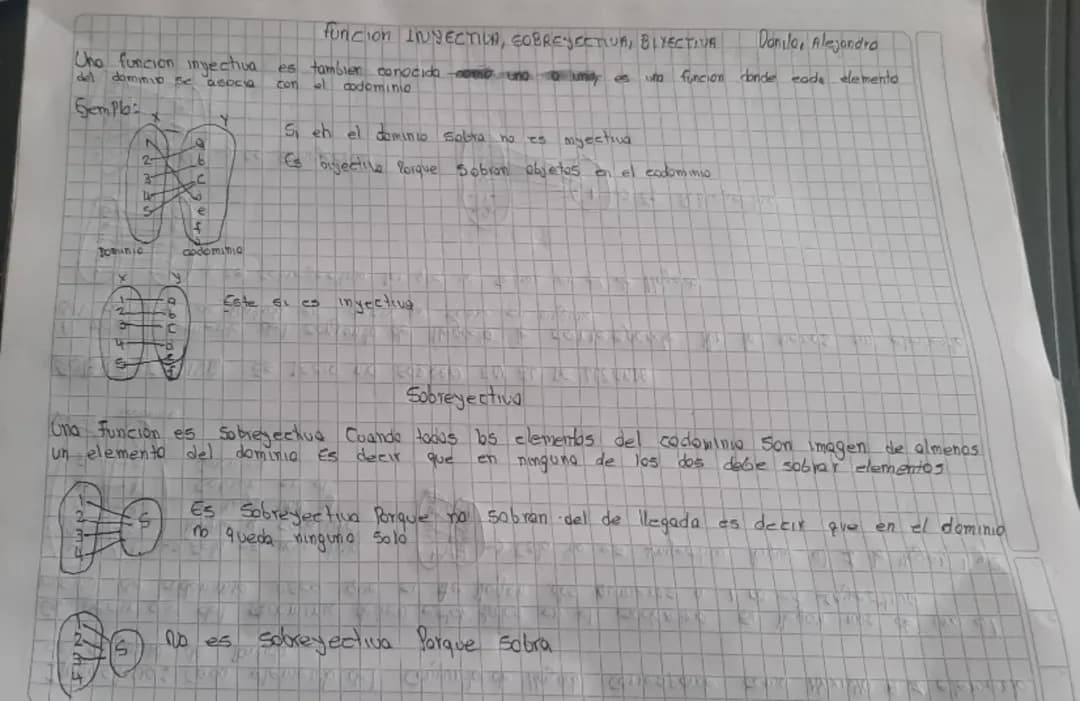 función INYECTIVA, SOBREYECTIVA, BIYECTIVA Danilo, Alejandro
Una función inyectiva es tambien conocida como una a una, es una función donde cada elemento
del dominio se asocia con el codominio
Ejemplo:
x y
1 a
2 b
3 c
4 d
5 e
f
Dominio codominio
Si en el dominio sobra no es inyectiva
Es biyectiva Porque sobran objetos en el codominio
x y
1 a
2 b
3 c
4 d
5 e
f
Este si es inyectiva
Sobreyectiva
Una función es sobreyectiva Cuando todos los elementos del codominio son imagen de almenos
un elemento del dominio Es decir que en ninguno de los dos debe sobrar elementos
1
2
3
4
5
Es Sobreyectiva Porque no sobran del de llegada es decir que en el dominio
no queda ninguno solo
1
2
3
4
5
No es sobreyectiva Porque sobra